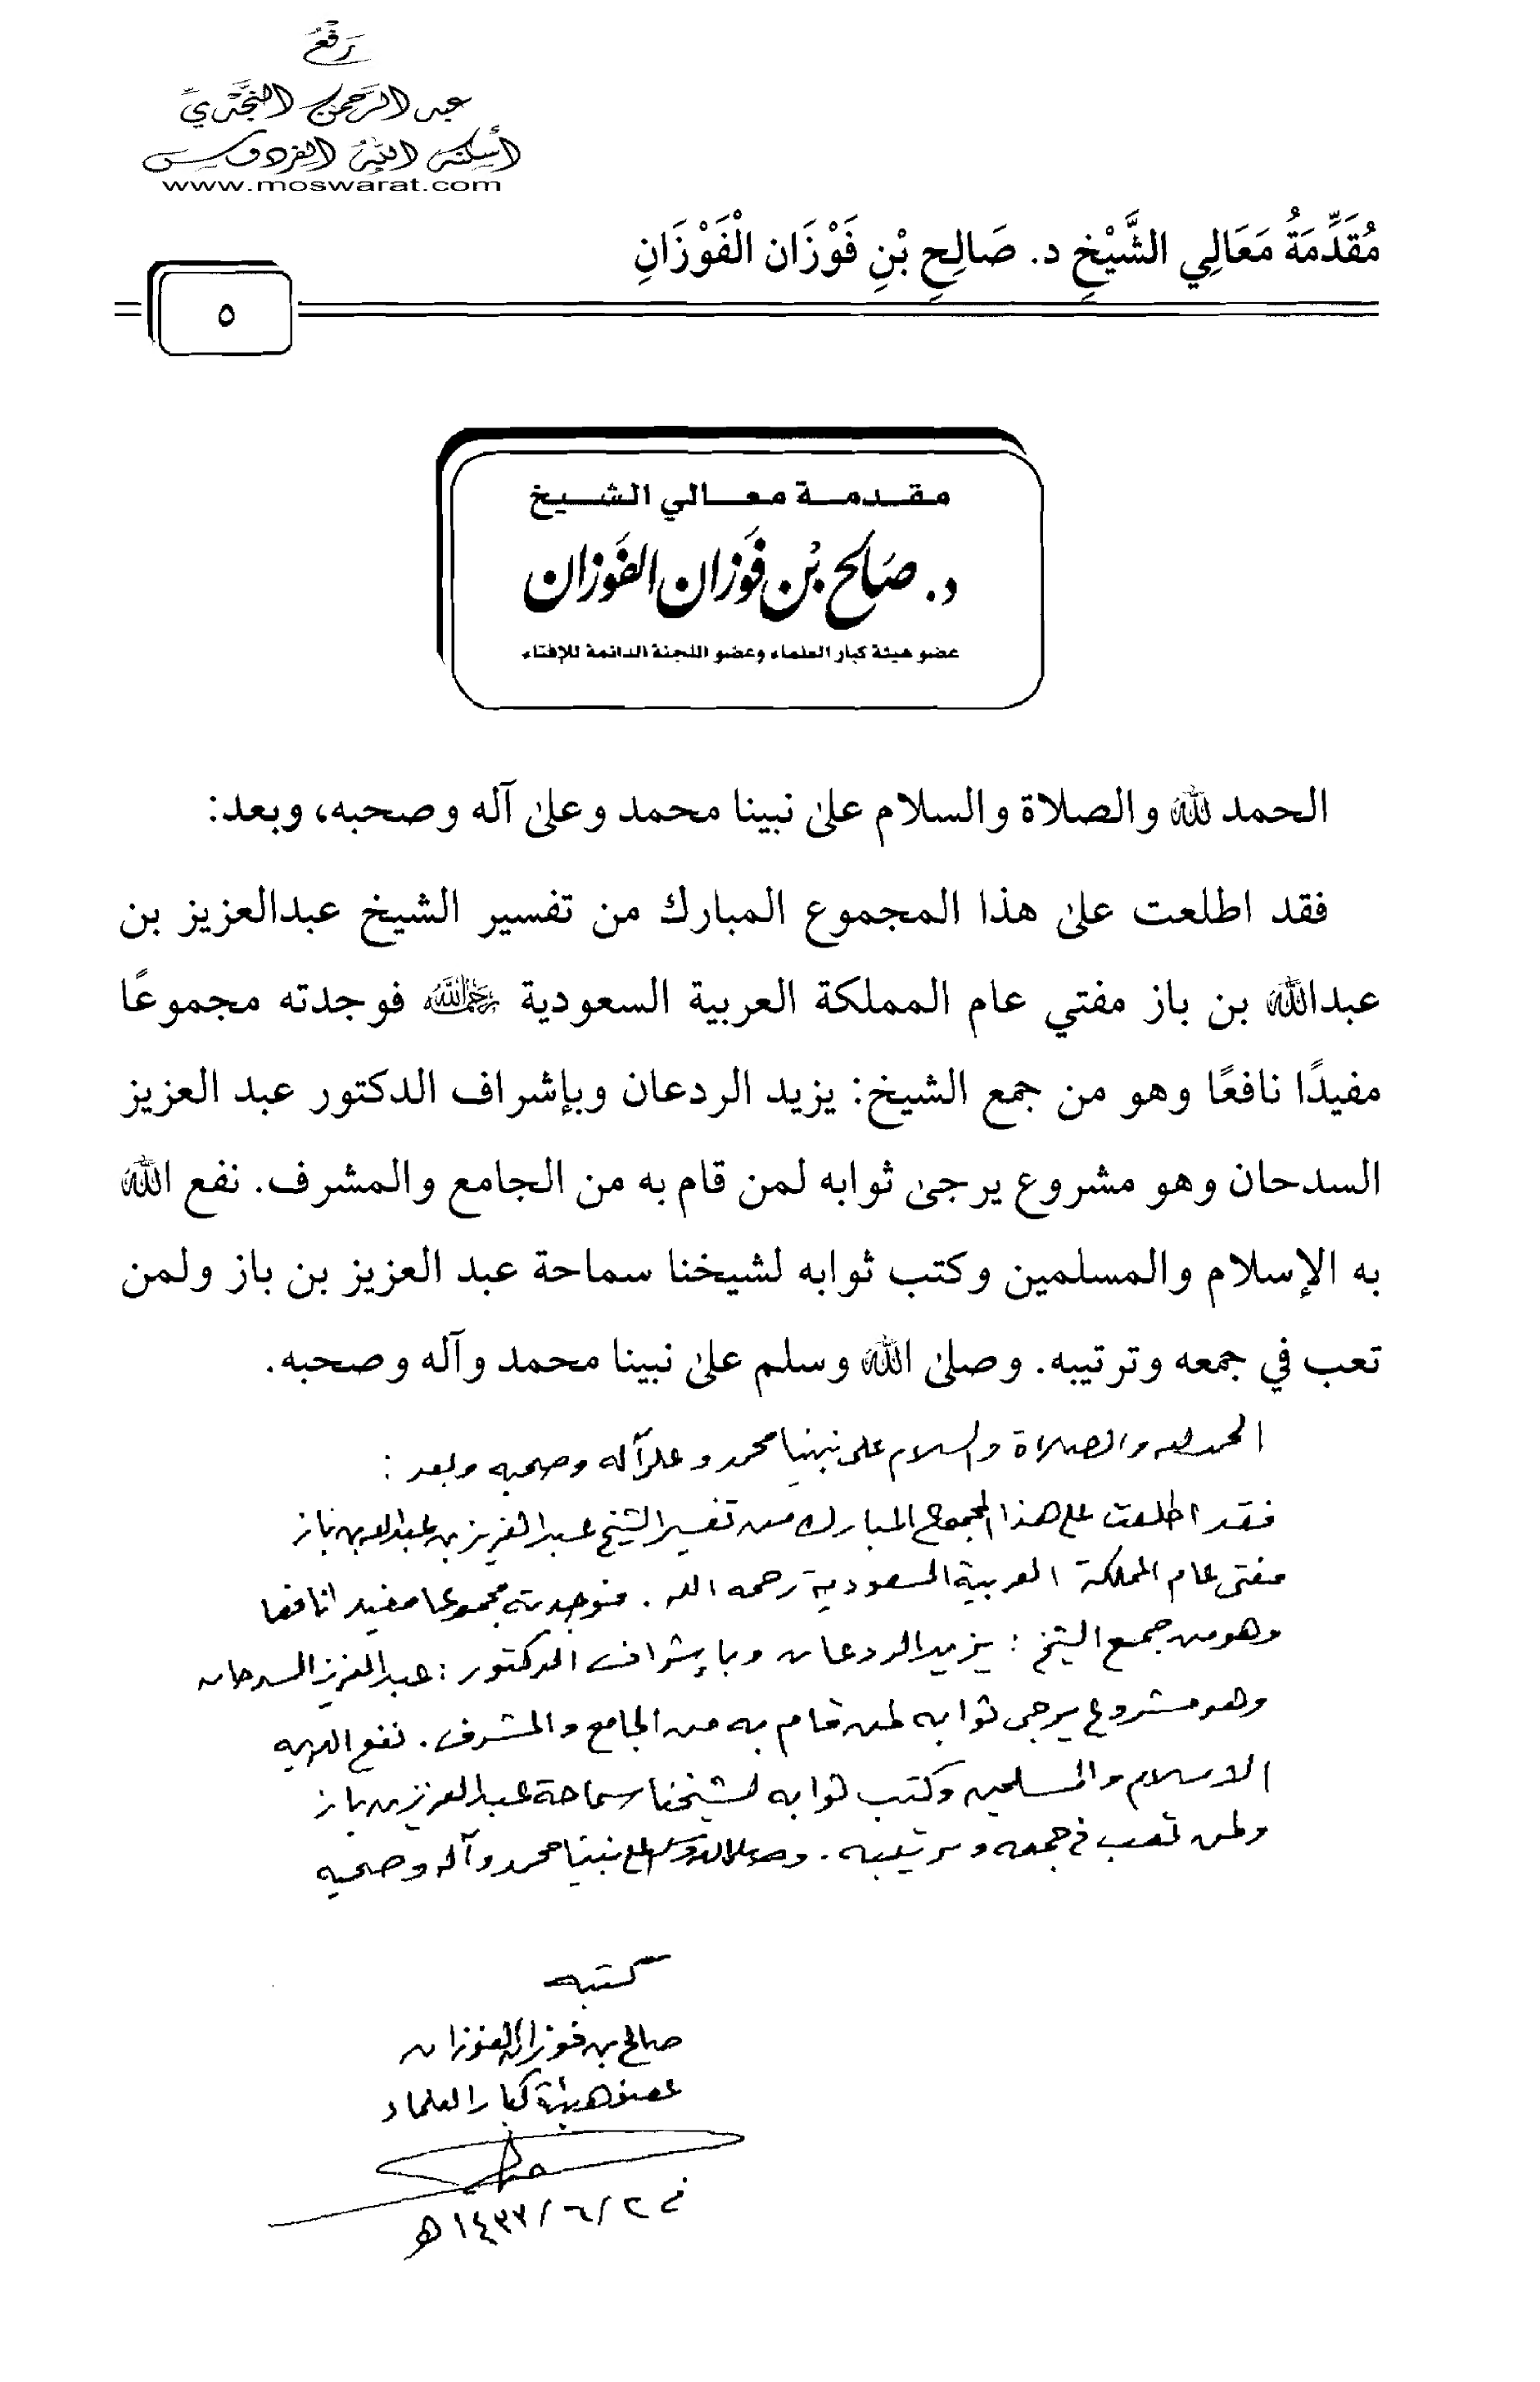 رَفْعُ
عبد الرَّحمن النَّجْدِيّ
أسكنه اللهُ الفردوس
www.moswarat.com
مُقَدِّمَةُ مَعَالِي الشَّيْخِ د. صَالِحِ بْنِ فَوْزَان الْفَوْزَانِ
٥
مقدمة معالي الشيخ
د. صَالح بْن فَوزان الفَوزان
عضو هيئة كبار العلماء وعضو اللجنة الدائمة للإفتاء
الحمد لله والصلاة والسلام علىٰ نبينا محمد وعلىٰ آله وصحبه، وبعد:
فقد اطلعت علىٰ هذا المجموع المبارك من تفسير الشيخ عبدالعزيز بن
عبدالله بن باز مفتي عام المملكة العربية السعودية رحمه الله فوجدته مجموعًا
مفيدًا نافعًا وهو من جمع الشيخ: يزيد الردعان وبإشراف الدكتور عبد العزيز
السدحان وهو مشروع يرجىٰ ثوابه لمن قام به من الجامع والمشرف. نفع الله
به الإسلام والمسلمين وكتب ثوابه لشيخنا سماحة عبد العزيز بن باز ولمن
تعب في جمعه وترتيبه. وصلىٰ الله وسلم علىٰ نبينا محمد وآله وصحبه.
الحمد لله والصلاة والسلام على نبينا محمد وعلى آله وصحبه وبعد :
فقد اطلعت على هذا المجموع المبارك من تفسير الشيخ عبد العزيز بن عبدالله بن باز
مفتى عام المملكة العربية السعودية رحمه الله . فوجدته مجموعا مفيدا نافعا
وهو من جمع الشيخ : يزيد الردعان وبإشراف الدكتور : عبد العزيز السدحان
وهو مشروع يرجى ثوابه لمن قام به من الجامع والمشرف . نفع الله به
الاسلام والمسلمين وكتب ثوابه لشيخنا سماحة عبد العزيز بن باز
ولمن تعب في جمعه وترتيبه . وصلى الله وسلم على نبينا محمد وآله وصحبه
كتبه
صالح بن فوزان الفوزان
عضو هيئة كبار العلماء
في ٢ / ٦ / ١٤٣٧ هـ